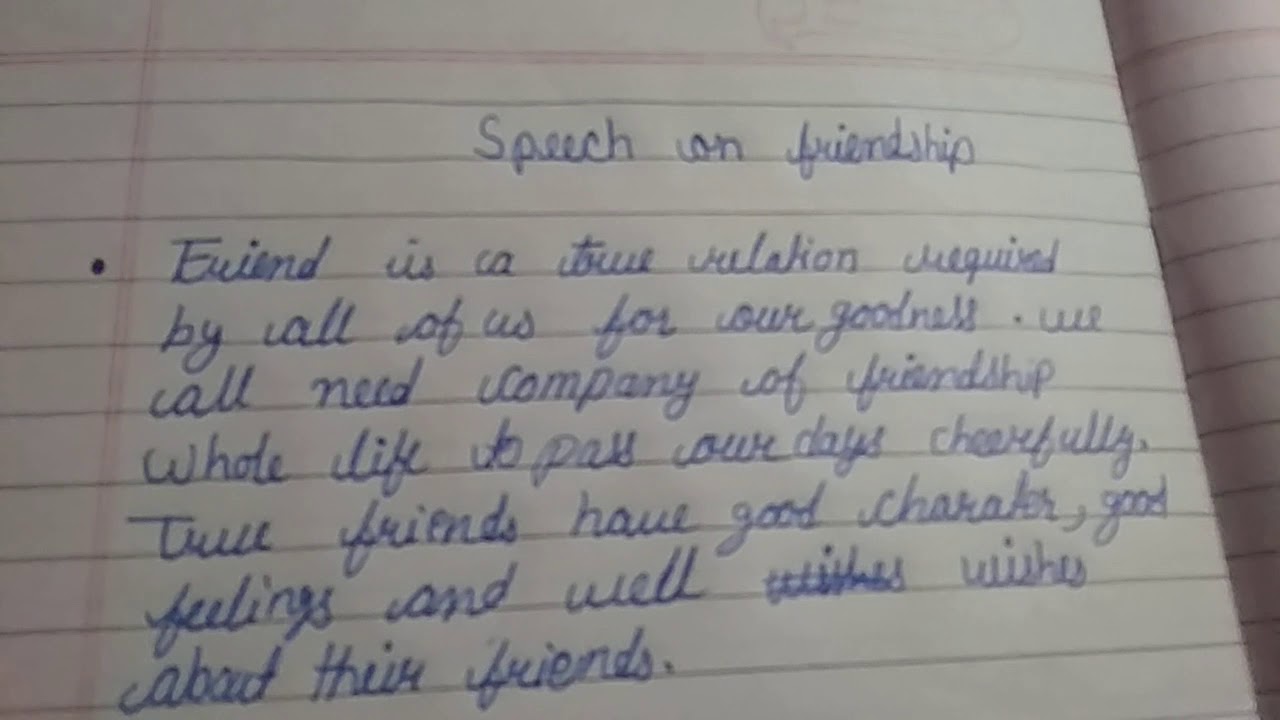 Speech on friendship
• Friend is a true relation required
by all of us for our goodness. we
all need company of friendship
whole life to pass our days cheerfully.
True friends have good charater, good
feelings and well wishes
about their friends.